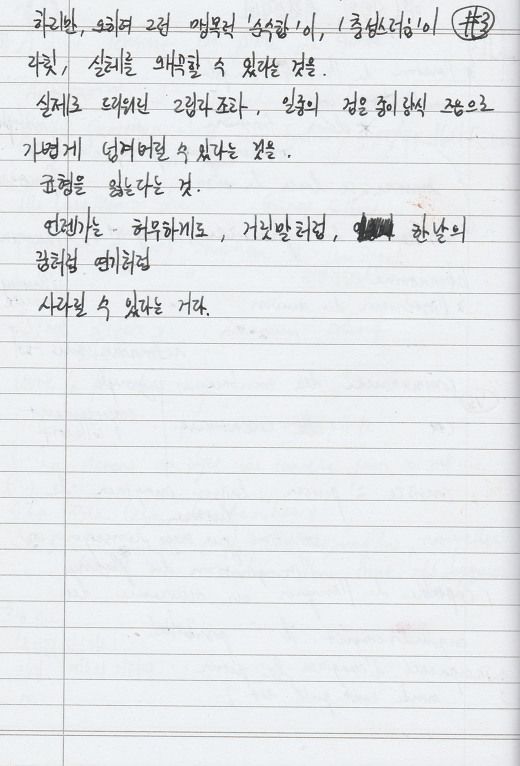 하지만, 오히려 그런 맹목적 '순수함'이, '충성스러움'이 #3
자칫, 실체를 왜곡할 수 있다는 것을.
실제로 드리워진 그림자조차, 일종의 겁을 종이 장식 조음으로
가볍게 넘겨버릴 수 있다는 것을.
균형을 잃는다는 것.
언젠가는 허무하게도, 거짓말처럼, 한낱의
꿈처럼 연기처럼
사라질 수 있다는 거다.